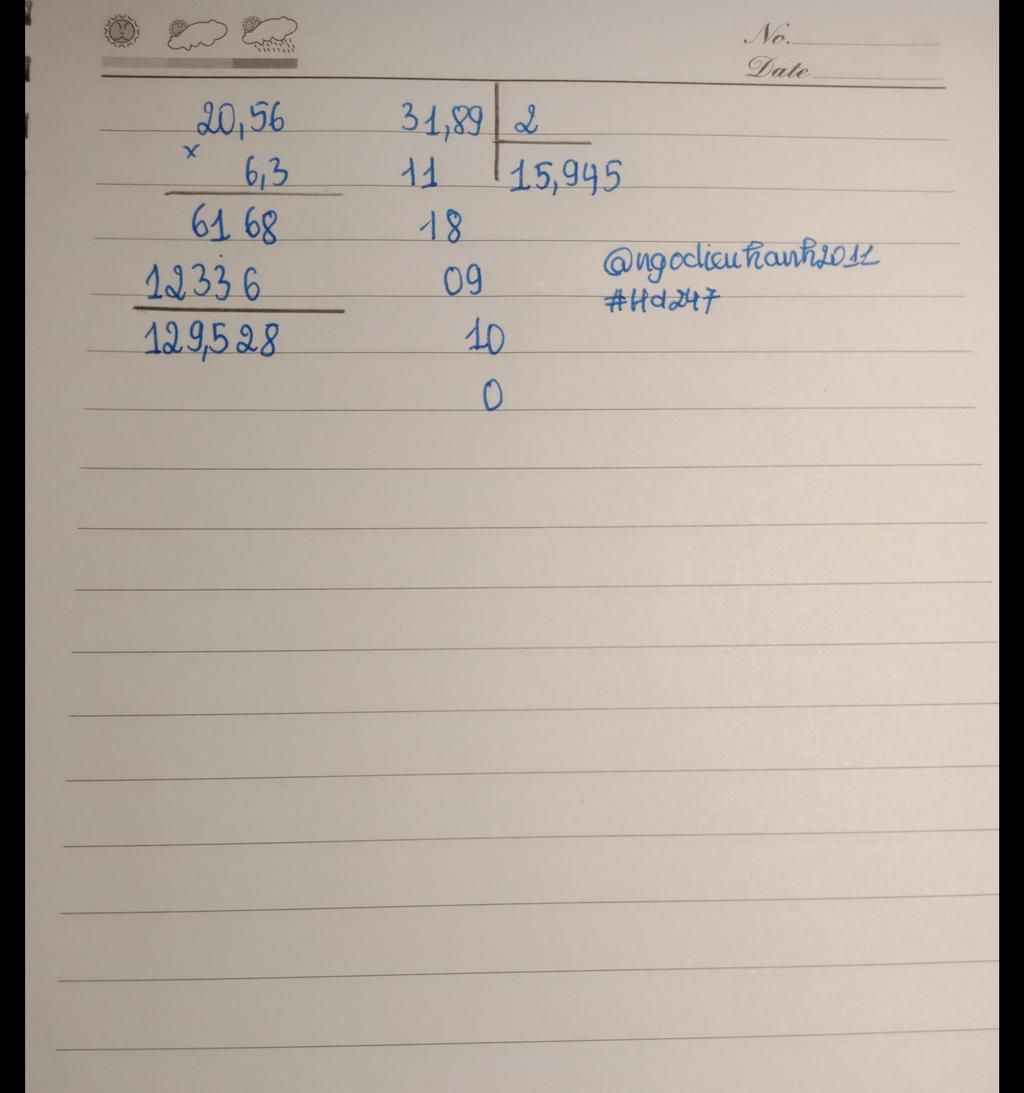 No.
Date
20,56
x
6,3
6168
12336
129,528
31,89 2
11 15,945
18
09
10
0
@ngodieukhanh2011
#Hd247